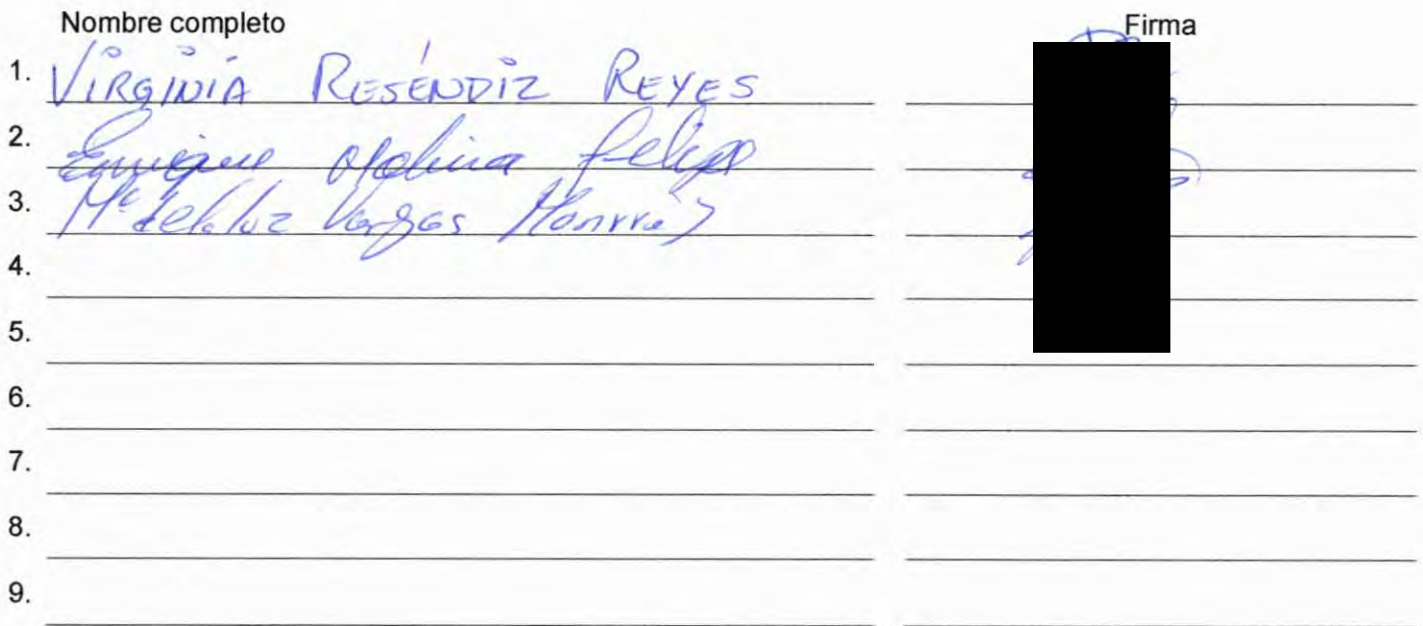 Nombre completo Firma
1. VIRGINIA RESÉNDIZ REYES
2. Enrique Molina Felipe
3. Mª de la luz Vargas
4.
5.
6.
7.
8.
9.